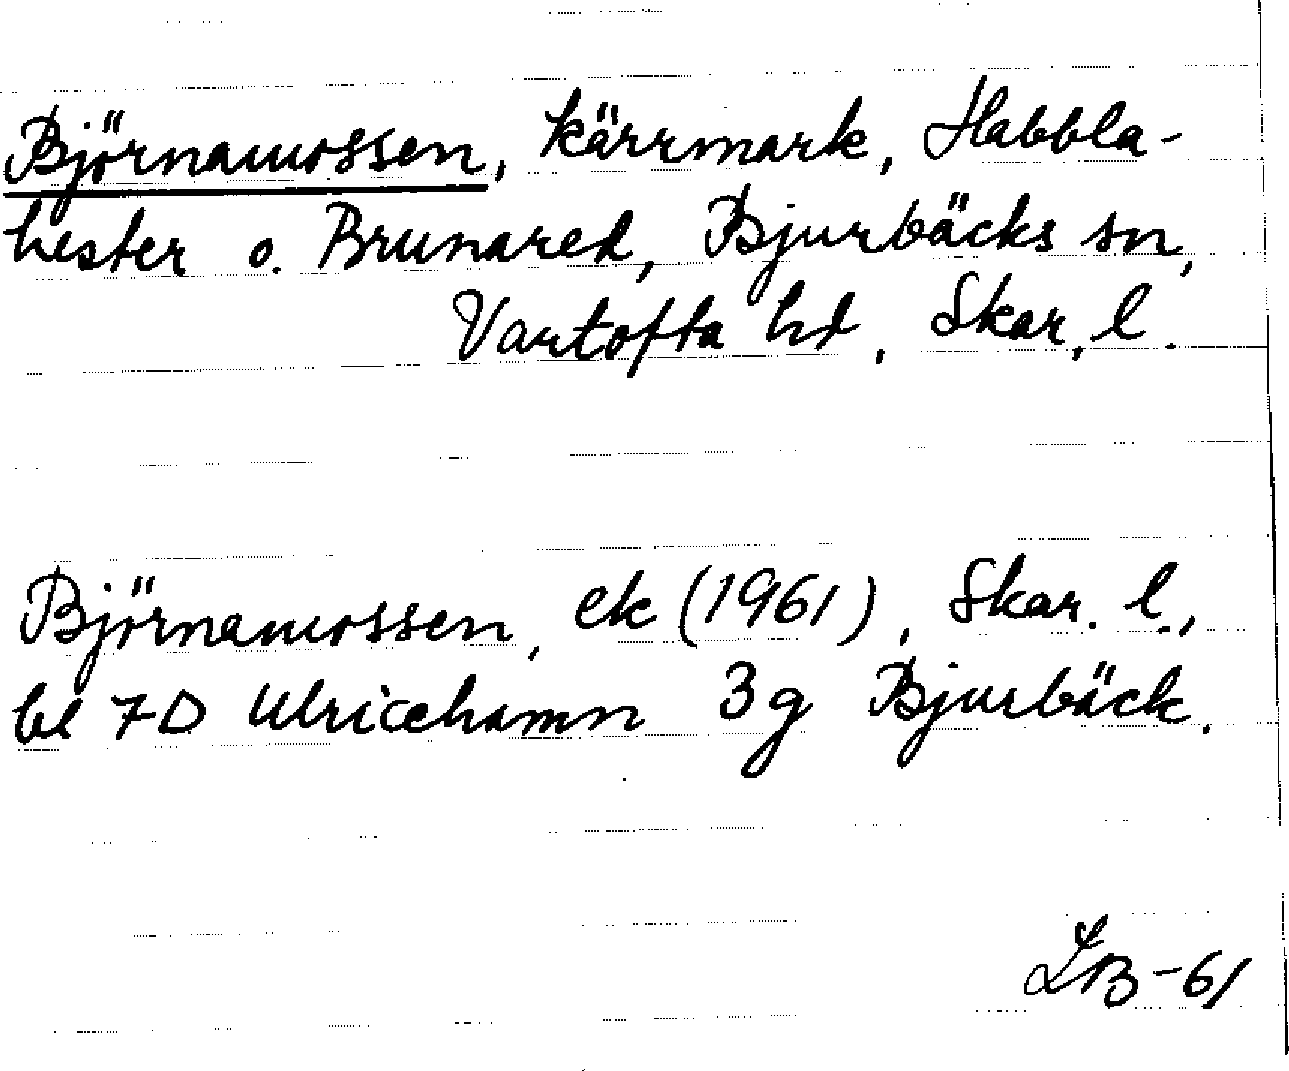 Björnamossen, kärrmark, Habbla-
hester o. Brunared, Bjurbäcks sn,
Vartofta hd, Skar. l.
Björnamossen, ek (1961), Skar. l.,
bl 7D Ulricehamn 3g Bjurbäck.
LB-61